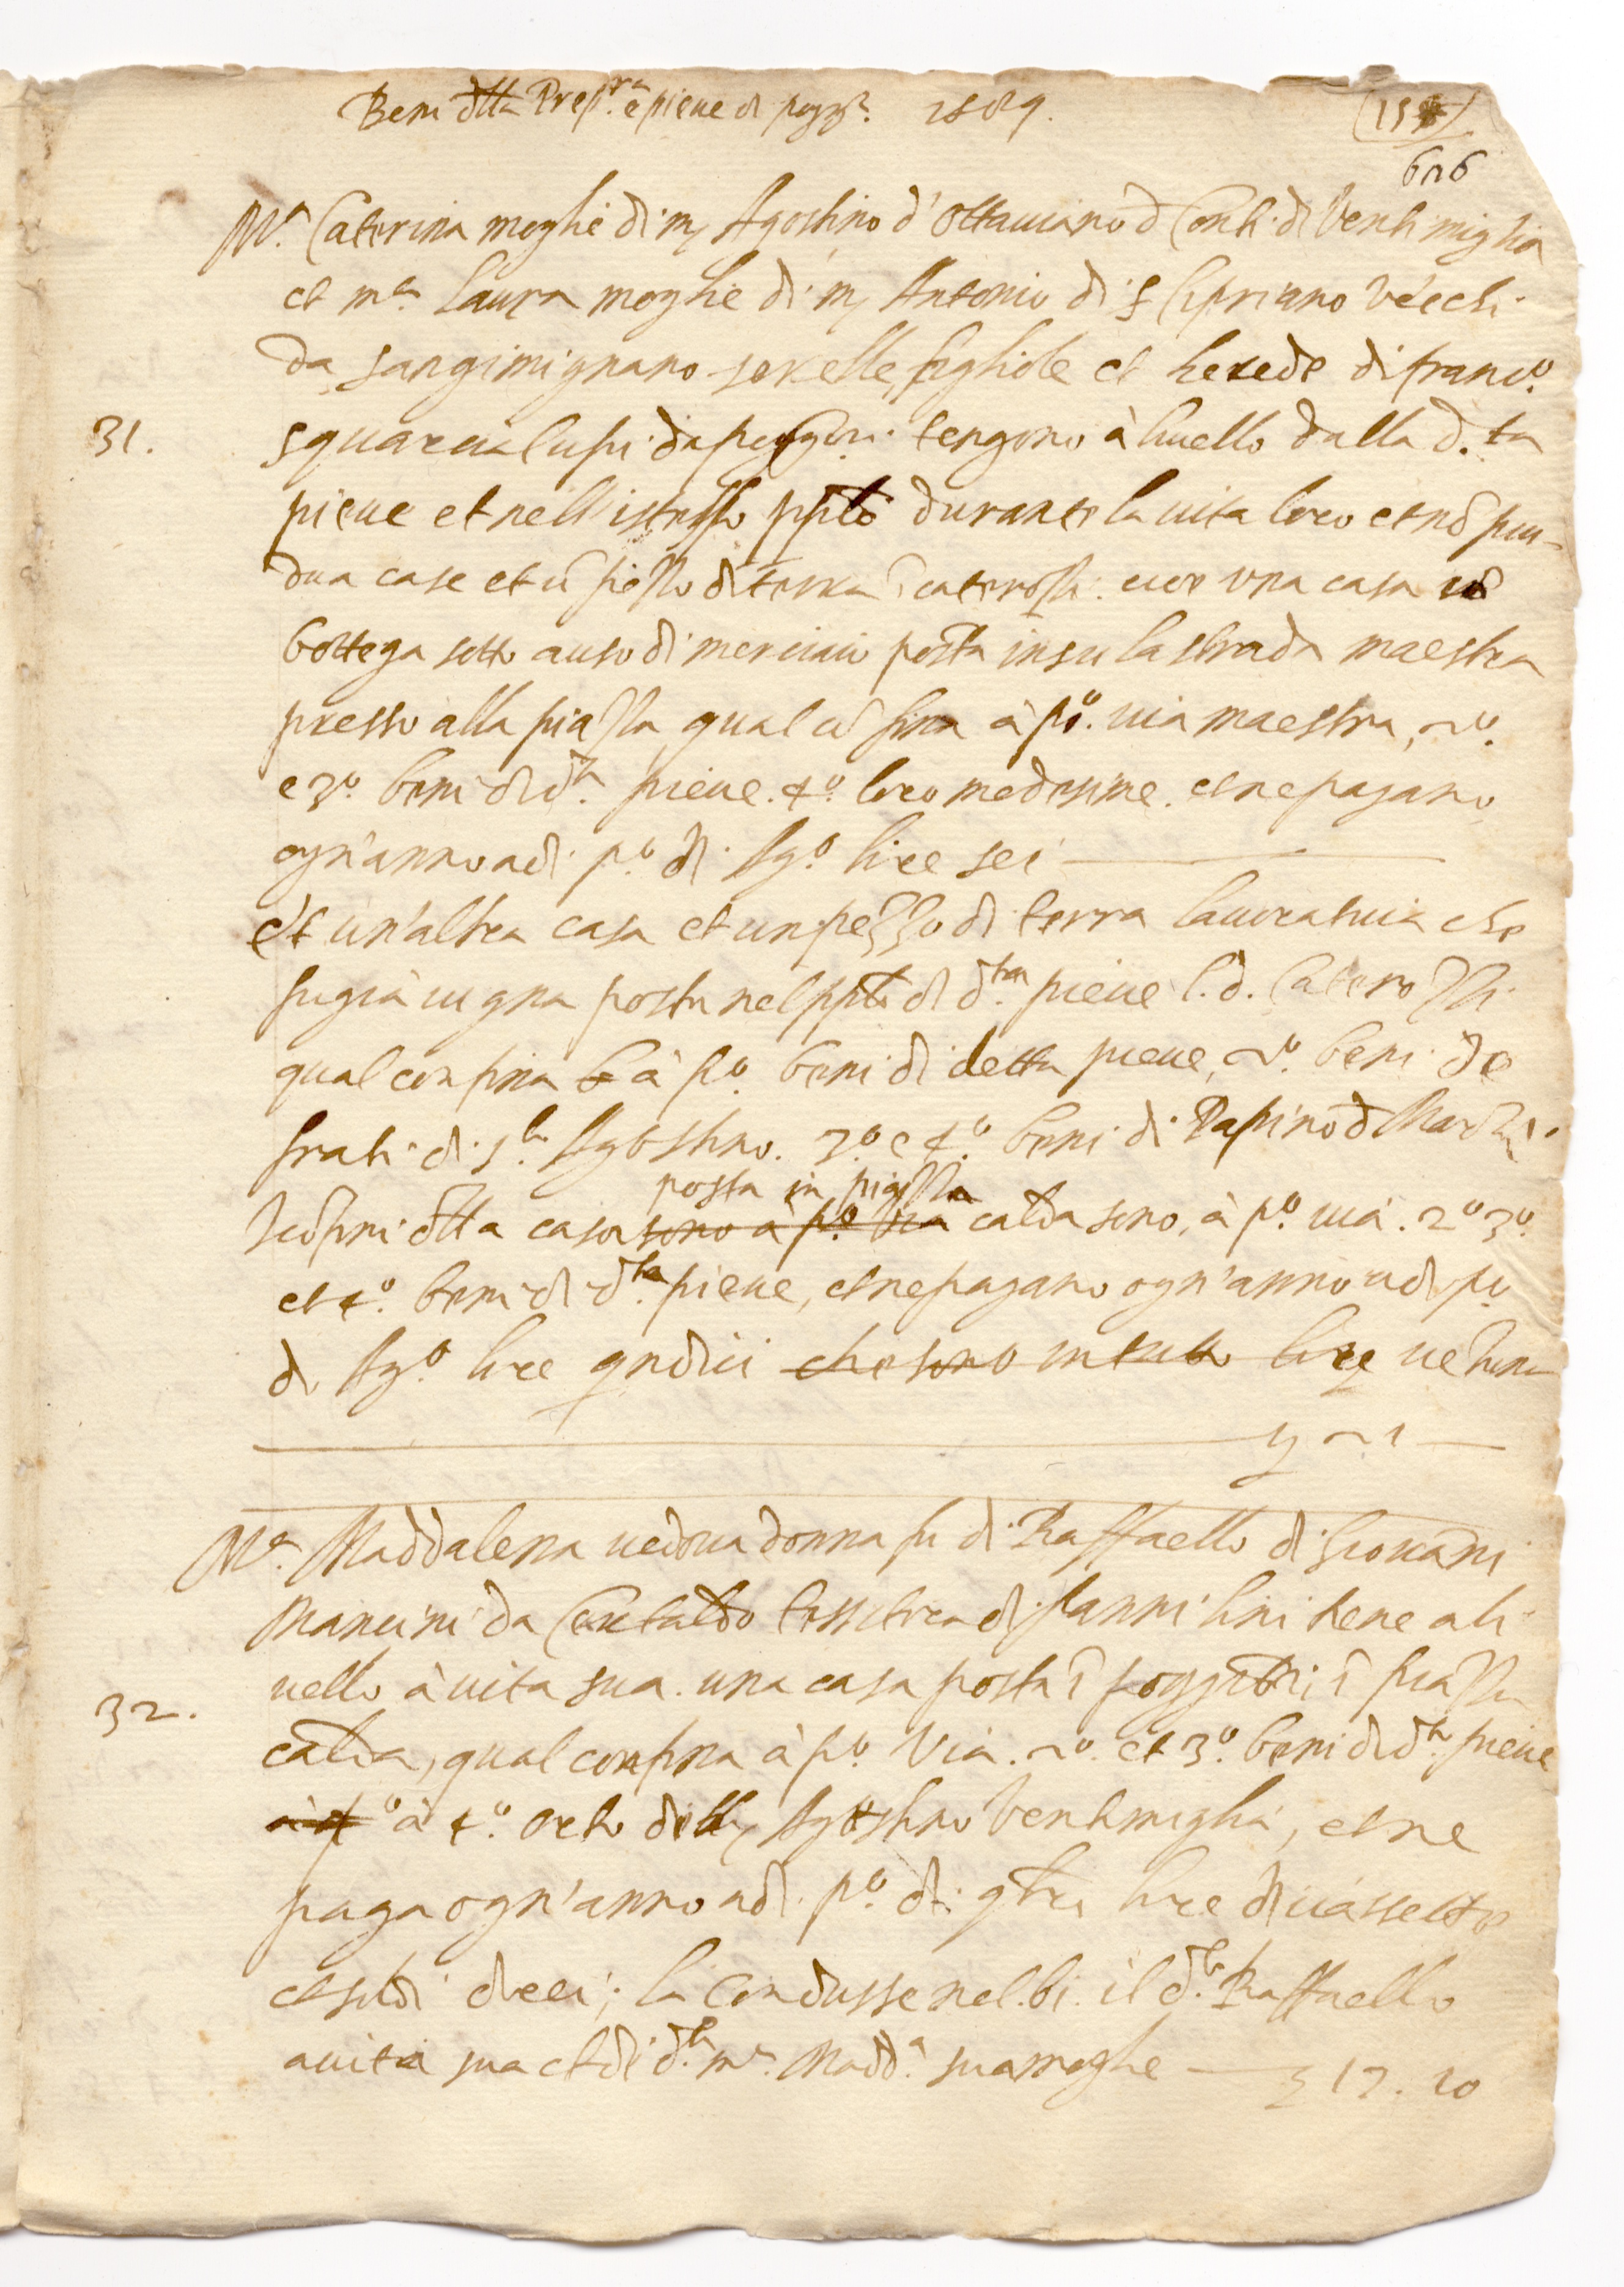 Beni d̄tta Prepra e pieve di pogg.i 1589.
(155)
626
Ma. Caterina moglie di m. Agostino d'Ottauiano d Conti di Ventimiglia
et ma. Laura moglie di m. Antonio di s. Cipriano Vecchi
da sangimignano sorelle, figliole et herede di franco.
31.
squarcialupi da poggi.i tengono à liuello dalla d.ta
pieue et nell'istesso pplo durante la uita loro et nō piu
dua case et ū pezzo di terra ī caterozzi: cioe vna casa cō
bottega sotto a uso di merciaio posta in su la strada maestra
presso alla piazza qual cōfina à po. uia maestra, 2o.
e 3o. beni di d.ta pieue. 4o. loro medesime. et ne pagano
ogn'anno adi po. di Ago. lire sei
et un'altra casa et un pezzo di terra lauoratiua che
fu già uigna posta nel pplo di d.ta pieue l.d. Caterozzi
qual confina b à po. beni di detta pieue, 2o. beni de
frati di s.to Agostino. 3o. e 4o. beni di Papino d
Icōfini d̄tta casa sono a po. via posta in piazza calda sono, à po. uia. 2o 3o.
et 4o. beni di d.ta pieue, et ne pagano ogn'anno adi po
di Ago. lire qndici che sono in tutto lire uētuna
21
Ma. Maddalena uedoua donna fu di Raffaello di Giouāni
Mancini da Certaldo tessitrice di panni lini tiene a li
32.
uello à uita sua. una casa posta ī poggibōzi ī piazza
calda, qual confina à po. Via. 2o. et 3o. beni di d.ta pieue
à 4o à 4o. orto di m. Agostino Ventimiglia, et ne
paga ogn'anno adi. po. di. lire diciassette
et soldi dieci; la condusse nel. il d.to Raffaello
a uita sua et di d.ta ma. Madda. sua moglie 17. 10